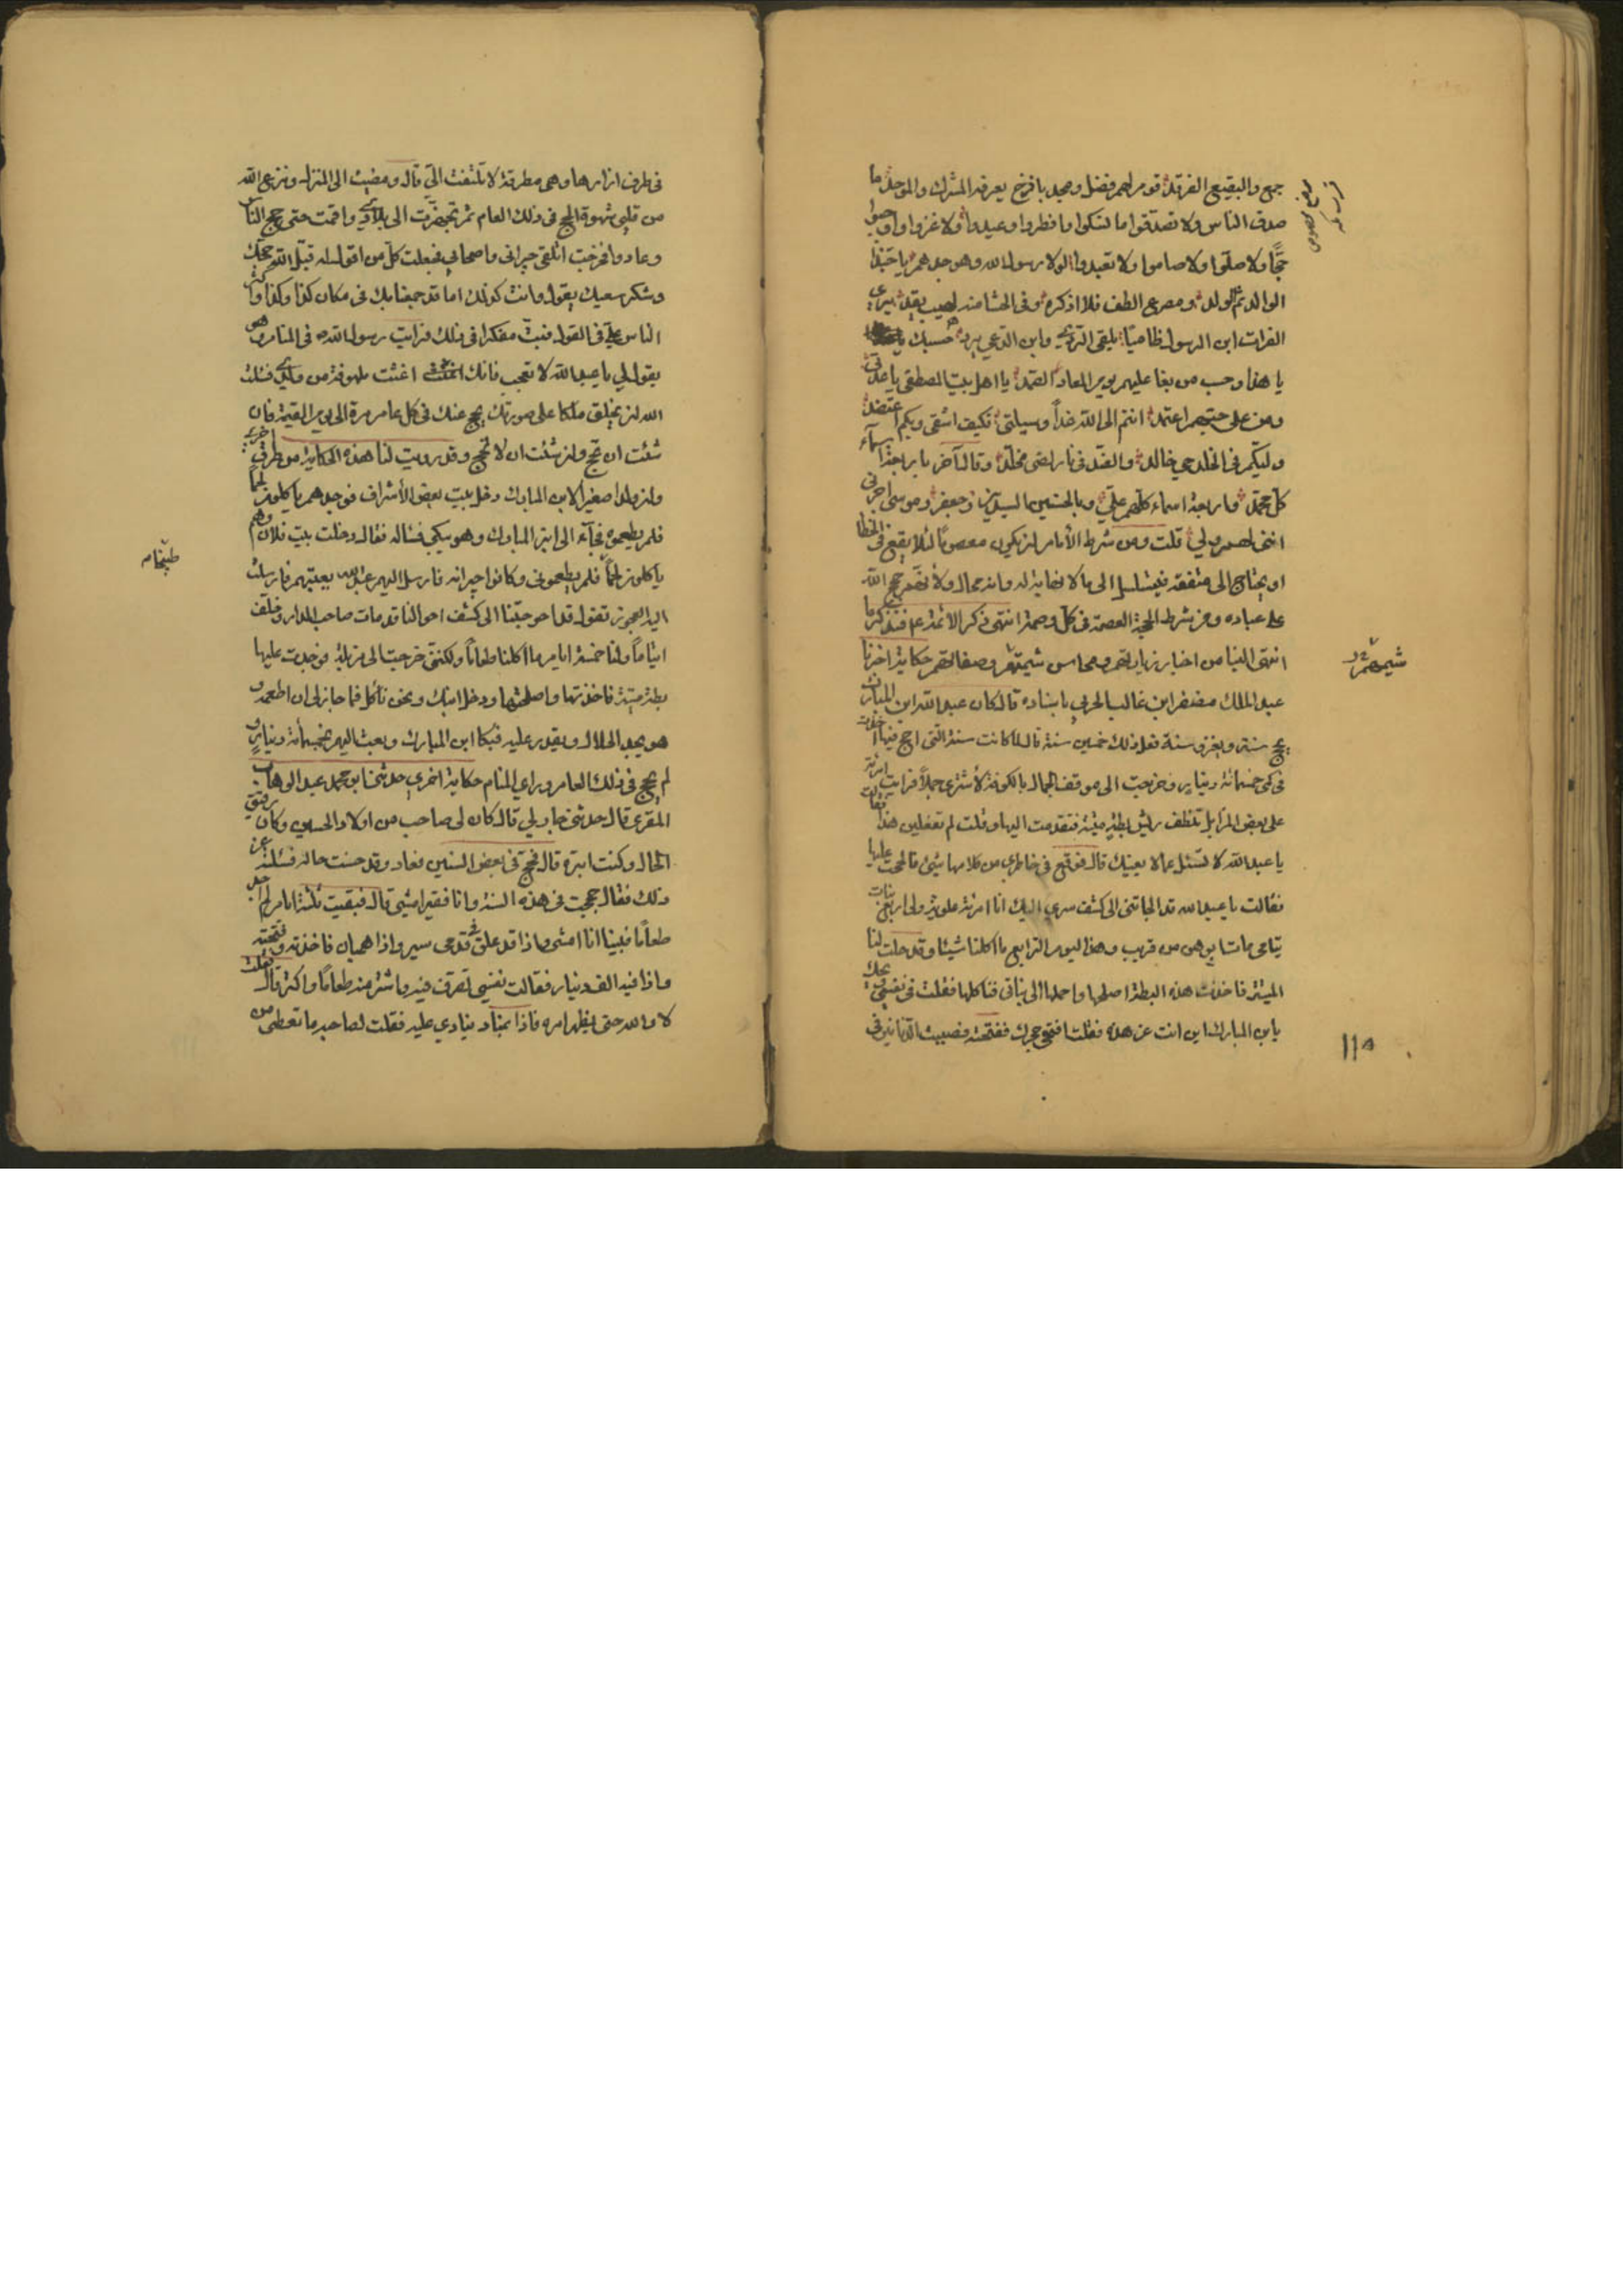 جمع والبقيع الغرقد قوم لهم فضل ومجد باذخ يعرفه المشرك والموحد ما
صدق الناس ولا تصدقوا ما نسكوا وافطروا وعيدوا ولا غزوا واوجبوا
حجا ولا صلوا ولا صاموا ولا تعبدوا لولا رسول الله وهو جدهم يا حبذا
الوالد ثم الولد ومصرع الطف فلا اذكره وفى الحشا منه لهيب يقد يرى
الفرات ابن الرسول ظاميا يلقى الردى وابن الدعى يرد حسبك
يا هذا وحسب من بغا عليهم يوم المعاد الصمد يا اهل بيت المصطفى يا عدتى
ومن على حبهم اعتمد انتم الى الله غدا وسيلتى فكيف اشقى وبكم اعتضد
وليكم فى الخلد حي خالد والضد فى نار لضى مخلد وقال آخر باربعة اسماء
كل محمد واربعة اسماء كلهم على وبالحسنين السيدين وجعفر وموسى اجرنى
اننى لهم ولي قلت ومن شرط الأمام ان يكون معصوما لئلا يقع فى الخطا
او يحتاج الى مثقفه فيتسلسل الى ما لا نهاية له وانه محال ولأنهم حجج الله
على عباده ومن شرط الحجة العصمة فى كل وصمة انتهى ذكر الائمة عم فنذكر ما
انتهى الينا من اخبار زياراتهم ومحاسن شيمتهم وصفاتهم حكاية اخبرنا
عبد الملك مظفر ابن غالب الحربي باسناده قال كان عبد الله ابن المبارك
يحج سنة ويغزو سنة فعل ذلك خمسين سنة قال لما كانت سنة التى احج فيها اخذت
فى كمى خمسمائة دينار وخرجت الى موقف الجمال بالكوفة لأشترى جملا فرايت امرئة
على بعض المزابل تنظف ريش بطة ميتة فتقدمت اليها وقلت لم تفعلين هذا فقالت
يا عبد الله لا تسئل عما لا يعنيك قال فوقع فى خاطري من كلامها شئ فالححت عليها
فقالت يا عبد الله قد الجاتنى الى كشف سري اليك انا امرئة علوية ولى اربع بنات
يتامى مات ابوهن من قريب وهذا اليوم الرابع ما اكلنا شيئا وقد حلت لنا
الميتة فاخذت هذه البطة اصلحها واحملها الى بناتى فناكلها فقلت فى نفسى ويحك
يابن المبارك اين انت عن هذه فقلت افتحى حجرك ففتحته فصبيت الدنانير فى
شيمتهم
١١٥
فى طرف ازارها وهى مطرقة لا تلتفت الى قال ومضيت الى المنزل ونزع الله
من قلبي شهوة الحج فى ذلك العام ثم تجهزت الى بلادى واقمت حتى حج الناس
وعادوا فخرجت اتلقى جيرانى واصحابى فجعلت كل من اقول له قبل الله حجك
وشكر سعيك يقول وانت كذلك اما قد جمعنا بك فى مكان كذا وكذا واكثر
الناس علي فى القول فبت مفكرا فى ذلك فرايت رسول الله ص فى المنام وهو
يقول لي يا عبد الله لا تعجب فانك اغثت ملهوفة من ولدي فسئلت
الله ان يخلق ملكا على صورتك يحج عنك فى كل عام مرة الى يوم القيمة فان
شئت ان تحج وان شئت ان لا تحج وقد رويت لنا هذه الحكاية من طرق اخرى
وان ولدا صغيرا لابن المبارك دخل بيت بعض الأشراف فوجدهم ياكلون لحما
فلم يطعموه فجآء الى ابن المبارك وهو يبكى فسئاله فقال دخلت بيت فلان وهم
ياكلون لحما فلم يطعمونى وكانوا جيرانه فارسل اليهم عبد الله يعتبهم فارسلت
اليه العجوز تقول قد احوجتنا الى كشف احوالنا قد مات صاحب الدار وخلف
ايتاما ولنا خمسة ايام ما اكلنا طعاما ولكننى خرجت الى مزبلة فوجدت عليها
بطة ميتة فاخذتها واصلحتها ودخل ابنك ونحن نأكل فما جاز لى ان اطعمه و
هو يجد الحلال ويقدر عليه فبكا ابن المبارك وبعث اليهم بخمسمأئة دينار و
لم يحج فى ذلك العام وراي المنام حكاية اخري حدثنا ابو محمد عبد الوهاب
المقرى قال حدثنى جار لي قال كان لى صاحب من اولاد الحسين وكان رقيق
الحال وكنت ابره قال فحج فى بعض السنين فعاد وقد حسنت حاله فسئلته عن
ذلك فقال حججت فى هذه السنة وانا فقير امشى قال فبقيت ثلثة ايام لم اجد
طعاما فبينا انا امشى واذا قد علق فى قدمى سير واذا هميان فاخذته وفتحته
واذا فيه الف دينار فقالت نفسى تصرف فيه واشتر منه طعاما واكتر قال فقلت
لا والله حتى يظهر امره فاذا بمناد ينادي عليه فقلت لصاحبه ما تعطى من